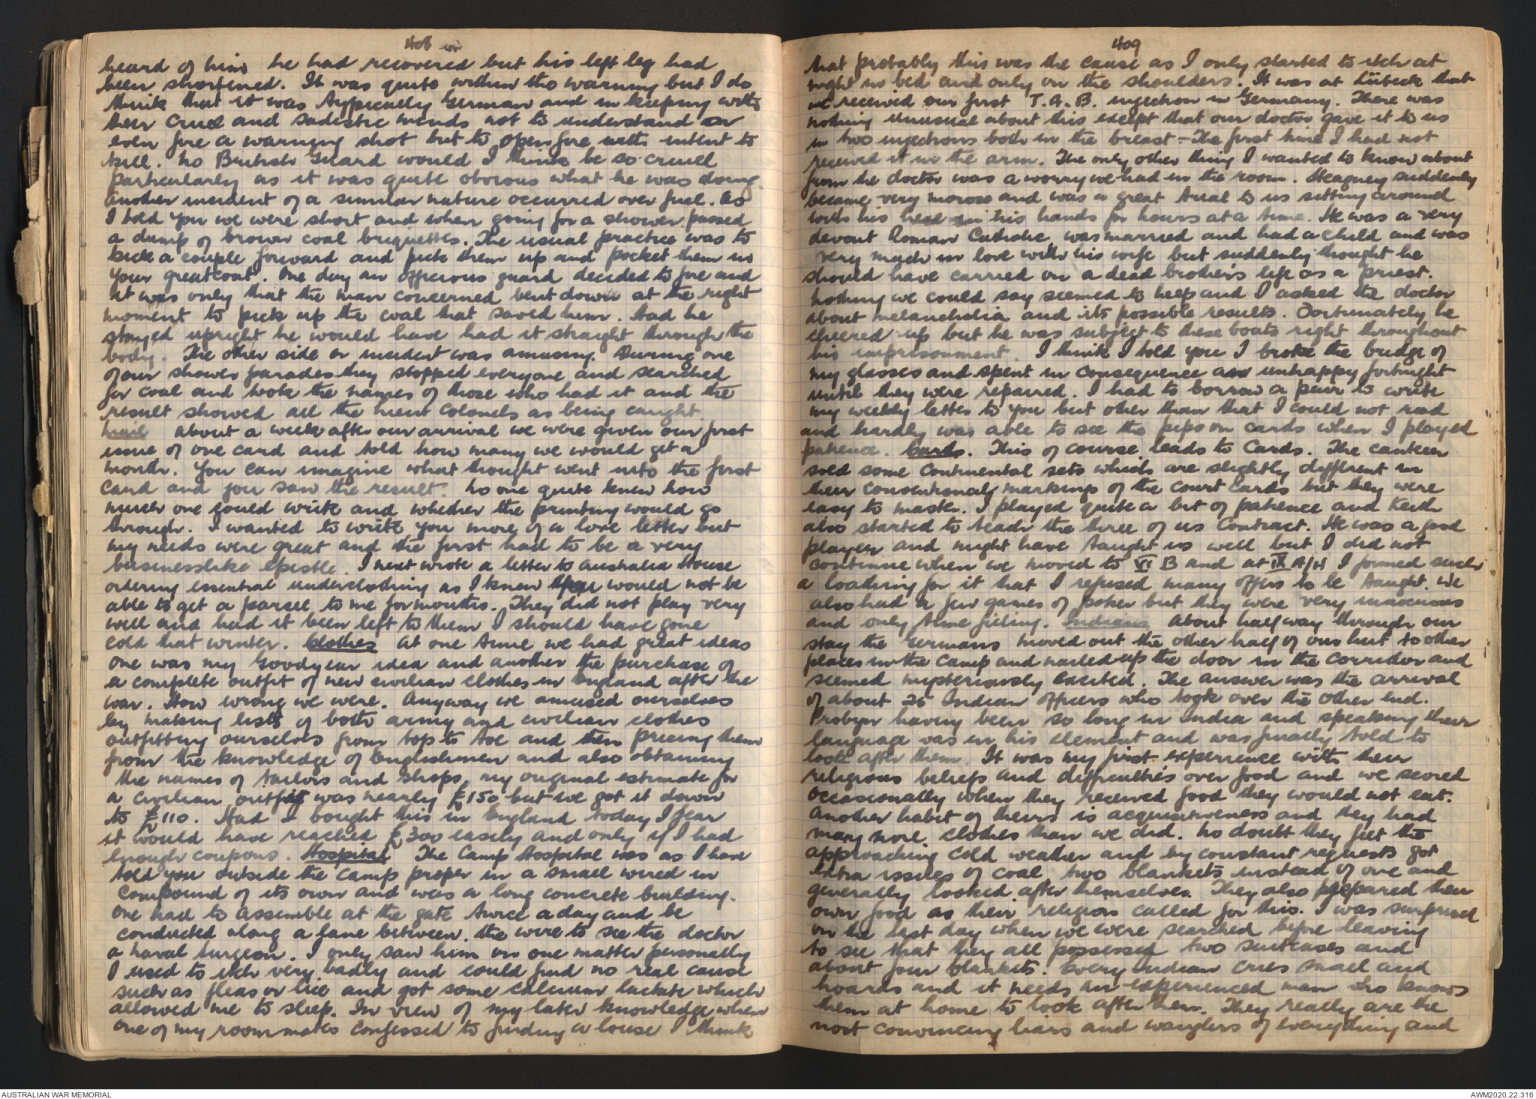 408
heard of him he had recovered but his left leg had
been shortened. It was quite within the warning but I do
think that it was typically German and in keeping with
their cruel and sadistic minds not to understand or
even fire a warning shot but to open fire with intent to
kill. No British Guard would I think be so cruel
particularly as it was quite obvious what he was doing.
Another incident of a similar nature occurred over fuel. As
I told you we were short and when going for a shower passed
a dump of brown coal briquettes. The usual practice was to
kick a couple forward and pick them up and pocket them in
your greatcoat. One day an officious guard decided to fire and
it was only that the man concerned bent down at the right
moment to pick up the coal that saved him. Had he
stayed upright he would have had it straight through the
body. The other side or incident was amusing. During one
of our shower parades they stopped everyone and searched
for coal and took the names of those who had it and the
result showed all the Lieut Colonels as being caught.
Mail About a week after our arrival we were given our first
issue of one card and told how many we would get a
month. You can imagine what thought went into the first
card and you saw the result. No one quite knew how
much one could write and whether the printing would go
through. I wanted to write you more of a love letter but
my needs were great and the first had to be a very
businesslike epistle. I next wrote a letter to Australia House
ordering essential underclothing as I knew you would not be
able to get a parcel to me for months. They did not play very
well and had it been left to them I should have gone
cold that winter. Clothes At one time we had great ideas
one was my Goodyear idea and another the purchase of
a complete outfit of new civilian clothes in England after the
war. How wrong we were. Anyway we amused ourselves
by making lists of both army and civilian clothes
outfitting ourselves from top to toe and then pricing them
from the knowledge of Englishmen and also obtaining
the names of tailors and shops. my original estimate for
a civilian outfit was nearly £150 but we got it down
to £110. Had I bought this in England today I fear
it would have reached £300 easily and only if I had
enough coupons. Hospital The Camp Hospital was as I have
told you outside the camp proper in a small wired in
compound of its own and was a long concrete building.
One had to assemble at the gate twice a day and be
conducted along a lane between the wire to see the doctor
a naval surgeon. I only saw him on one matter personally
I used to itch very badly and could find no real cause
such as fleas or lice and got some calcium lactate which
allowed me to sleep. In view of my later knowledge when
one of my roommates confessed to finding a louse I think
409
that probably this was the cause as I only started to itch at
night in bed and only on the shoulders. It was at Lübeck that
we received our first T.A.B. injection in Germany. There was
nothing unusual about this except that our doctor gave it to us
in two injections both in the breast – The first time I had not
received it in the arm. The only other thing I wanted to know about
from the doctor was a worry we had in the room. Heagney suddenly
became very morose and was a great trial to us sitting around
with his head in his hands for hours at a time. He was a very
devout Roman Catholic, was married and had a child and was
very much in love with his wife but suddenly thought he
should have carried on a dead brother's life as a priest.
Nothing we could say seemed to help and I asked the doctor
about melancholia and its possible results. Fortunately he
cheered up but he was subject to these bouts right throughout
his imprisonment. I think I told you I broke the bridge of
my glasses and spent in consequence an unhappy fortnight
until they were repaired. I had to borrow a pair to write
my weekly letter to you but other than that I could not read
and hardly was able to see the pips on cards when I played
patience. Cards. This of course leads to Cards. The canteen
sold some Continental sets which are slightly different in
their conventional markings of the court cards but they were
easy to master. I played quite a bit of patience and Keith
also started to teach the three of us Contract. He was a good
player and might have taught us well but I did not
continue when we moved to VI B and at IX A/H I formed such
a loathing for it that I refused many offers to be taught. We
also had a few games of poker but they were very
and only time filling. Indians About half way through our
stay the Germans moved out the other half of our hut to other
places in the Camp and nailed up the door in the corridor and
seemed mysteriously excited. The answer was the arrival
of about 26 Indian officers who took over the other end.
Probyn having been so long in India and speaking their
language was in his element and was finally told to
look after them. It was my first experience with their
religious beliefs and difficulties over food and we scored
occasionally when they received food they would not eat.
Another habit of theirs is acquisitiveness and they had
many more clothes than we did. No doubt they felt the
approaching cold weather and by constant requests got
extra issues of coal, two blankets instead of one and
generally looked after themselves. They also prepared their
own food as their religion called for this. I was surprised
on the last day when we were searched before leaving
to see that they all possessed two suitcases and
about four blankets. Every Indian cries small and
hoards and it needs an experienced man who knows
them at home to look after them. They really are the
most convincing liars and wanglers of everything and
AUSTRALIAN WAR MEMORIAL
AWM2020.22.316